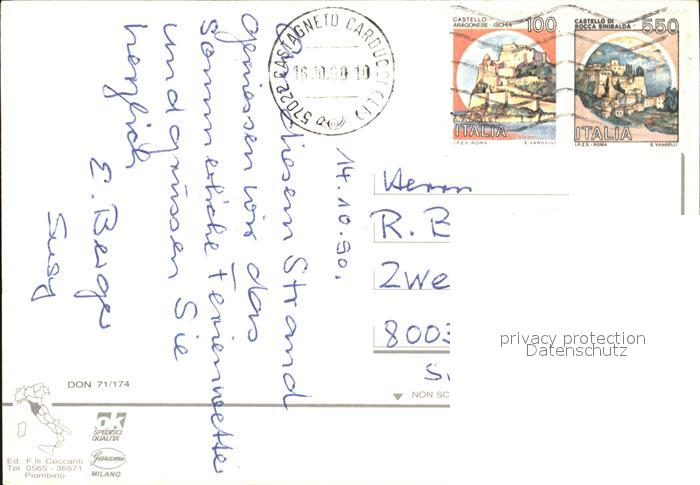 14.10.90.
An diesem Strand
geniessen wir das
sommerliche Ferienwetter
und grüssen Sie
herzlich
E. Berger
Susy
57022 CASTAGNETO CARDUCCI (LI)
16.10.90-10
CASTELLO
ARAGONESE - ISCHIA
100
ITALIA
I.P.Z.S. - ROMA E. VANGELLI
CASTELLO DI
ROCCA SINIBALDA
550
ITALIA
I.P.Z.S. - ROMA E. VANGELLI
Herrn
R. B
Zwe
8003
privacy protection
Datenschutz
NON SC
DON 71/174
ok
SPEDISCI
QUALITA'
Garami
MILANO
Ed. F.lli Ceccanti
Tel. 0565 - 36571
Piombino